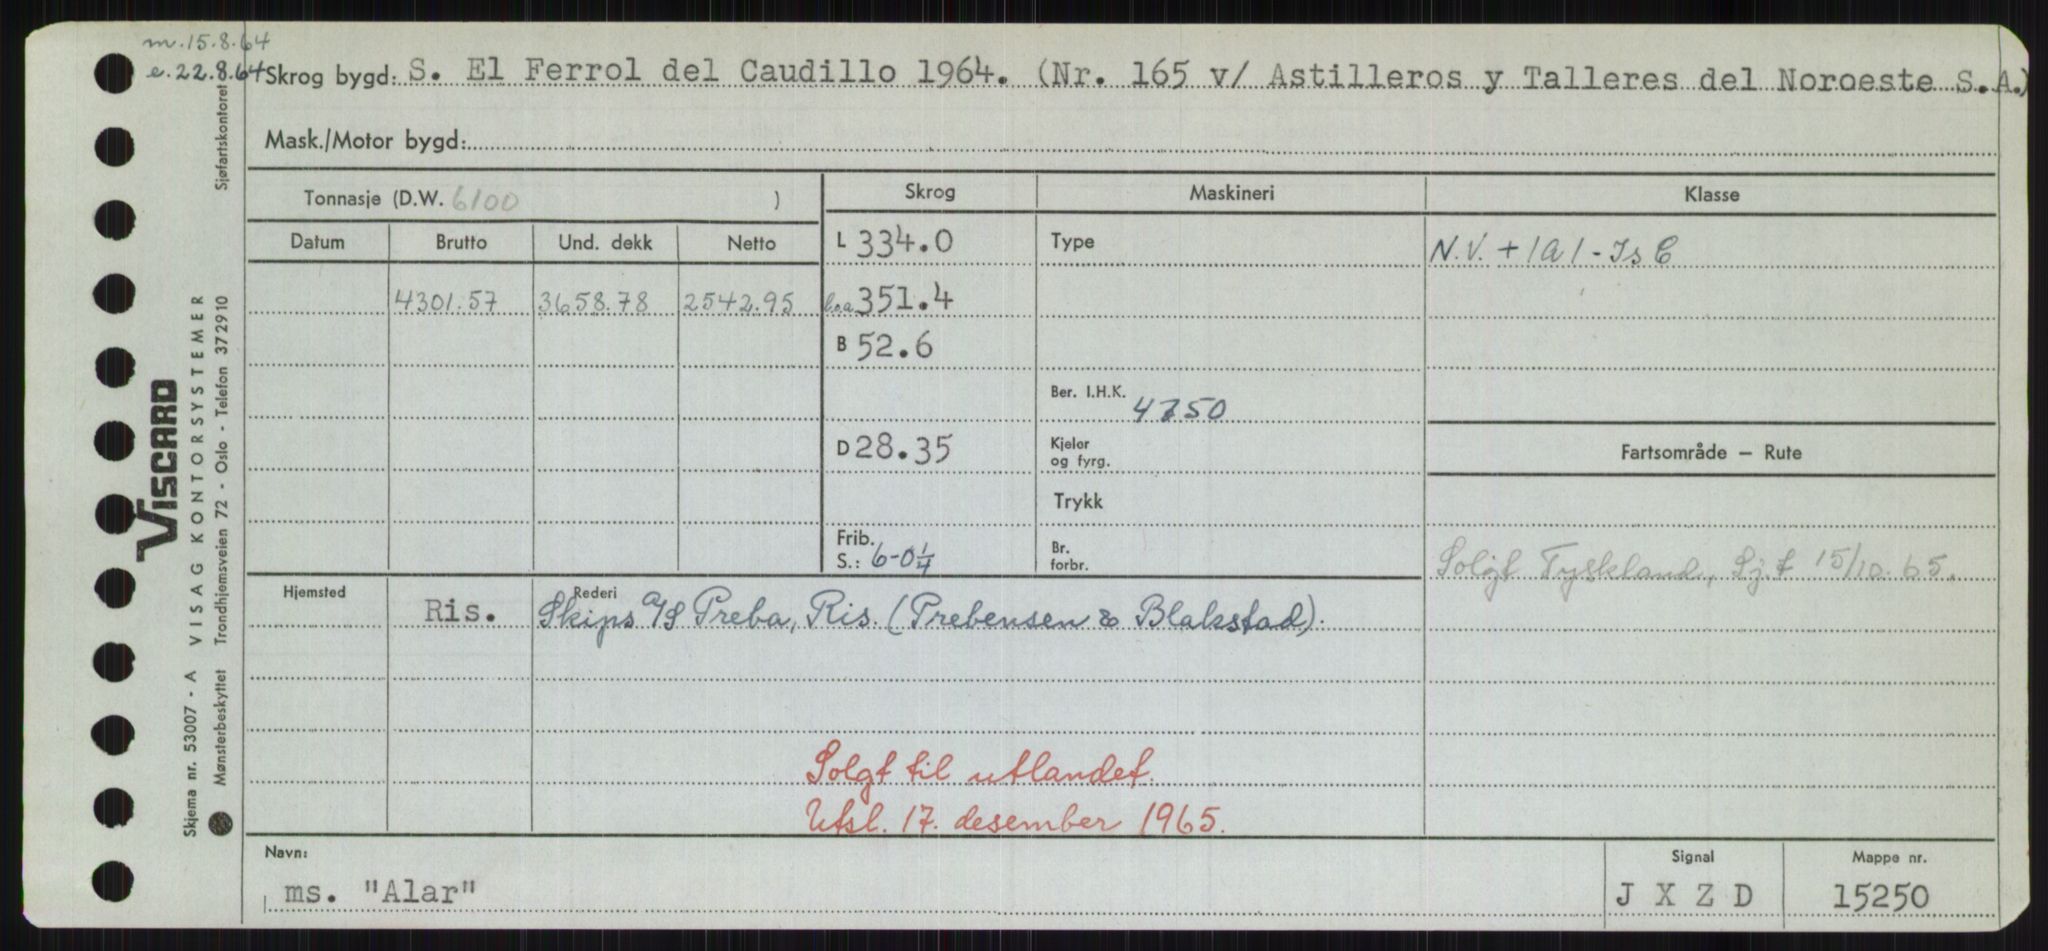 m.15.8.64
e.22.8.64
Skrog bygd: S. El Ferrol del Caudillo 1964. (Nr. 165 v/ Astilleros y Talleres del Noroeste S.A.)
Mask./Motor bygd:
Tonnasje (D.W. 6100 )
Skrog Maskineri Klasse
Datum Brutto Und. dekk Netto
L 334.0 Type N.V. + 1A1 - Is C
4301.57 3658.78 2542.95 l.o.a. 351.4
B 52.6
Ber. I.H.K. 4750
D 28.35 Kjeler og fyrg. Fartsområde — Rute
Trykk
Frib. S.: 6-0¼ Br. forbr. Solgt Tyskland, Sj.f 15/10.65.
Hjemsted Rederi
Ris. Skips A/S Preba, Ris. (Prebensen & Blakstad).
Solgt til utlandet.
Utsl. 17. desember 1965.
Navn: Signal Mappe nr.
ms. "Alar" J X Z D 15250
Sjøfartskontoret
VISCARD
VISAG KONTORSYSTEMER
Trondhjemsveien 72 - Oslo - Telefon 372910
Skjema nr. 53007 - A
Mønsterbeskyttet